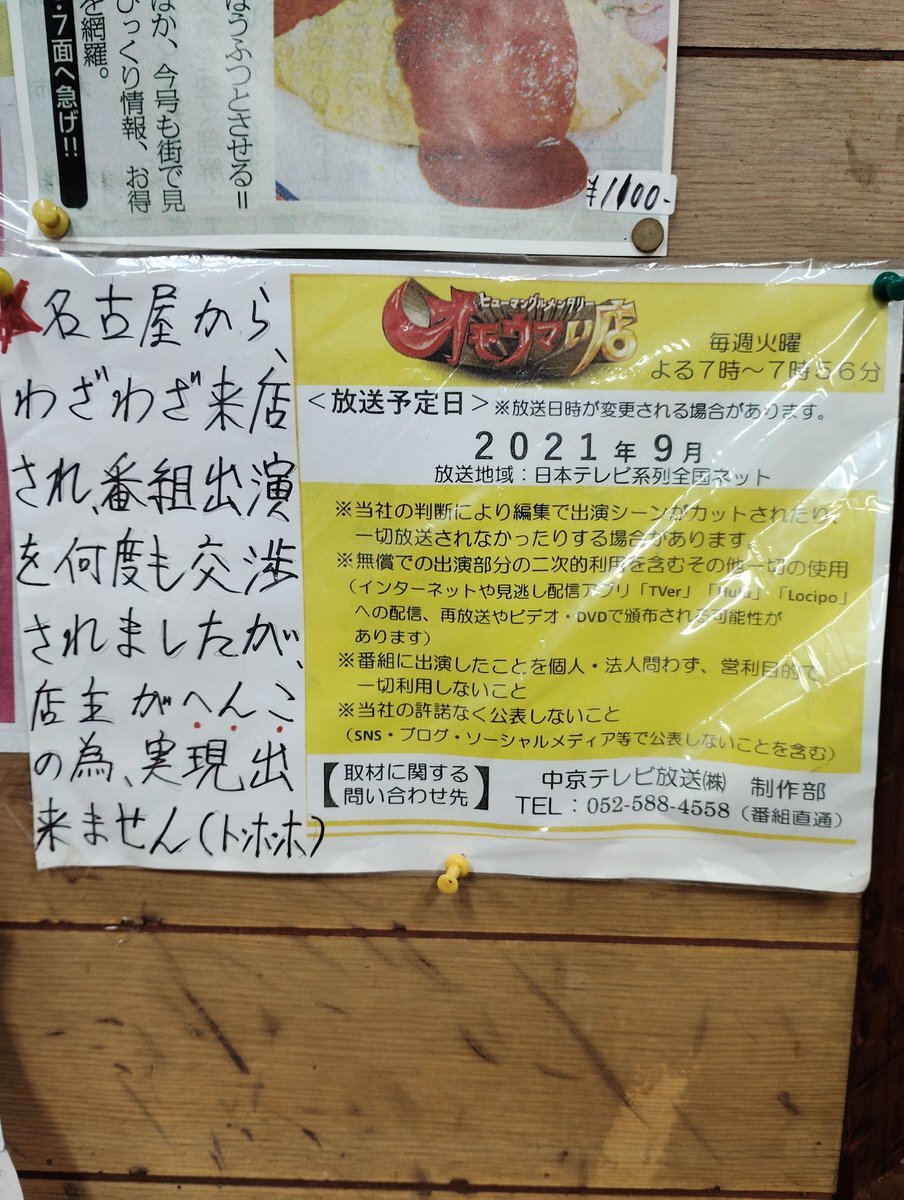 ほうふつとさせる＝
ほか、今号も街で見
びっくり情報、お得
を網羅。
7面へ急げ!!
¥1100-
名古屋から、
わざわざ来店
され、番組出演
を何度も交渉
されましたが、
店主がへんこ
の為、実現出
来ません(トホホ)
ヒューマングルメンタリー
オモウマい店
毎週火曜
よる7時～7時56分
＜放送予定日＞※放送日時が変更される場合があります。
2021年9月
放送地域：日本テレビ系列全国ネット
※当社の判断により編集で出演シーンがカットされたり、
一切放送されなかったりする場合があります。
※無償での出演部分の二次的利用を含むその他一切の使用
（インターネットや見逃し配信アプリ「TVer」「Hulu」「Locipo」
への配信、再放送やビデオ・DVDで頒布される可能性が
あります）
※番組に出演したことを個人・法人問わず、営利目的で
一切利用しないこと
※当社の許諾なく公表しないこと
（SNS・ブログ・ソーシャルメディア等で公表しないことを含む）
【取材に関する
問い合わせ先】
中京テレビ放送㈱ 制作部
TEL：052-588-4558（番組直通）